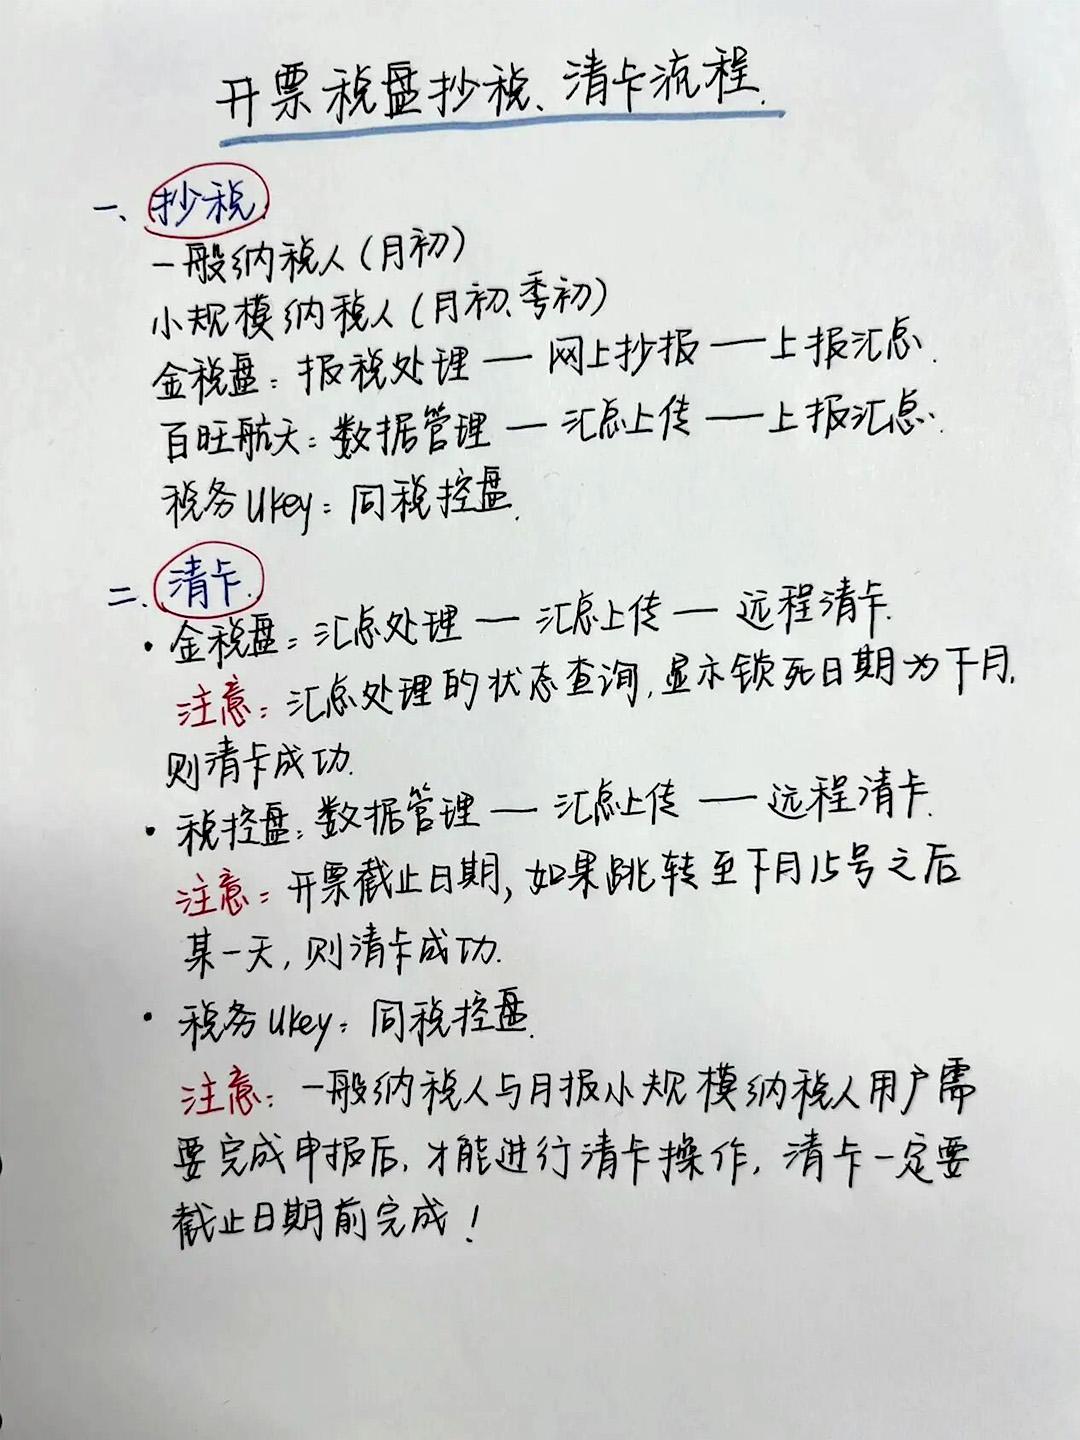 开票税盘抄税、清卡流程.
一、抄税.
一般纳税人(月初)
小规模纳税人(月初、季初)
金税盘:报税处理—网上抄报—上报汇总.
百旺航天:数据管理—汇总上传—上报汇总.
税务Ukey:同税控盘.
二、清卡.
·金税盘:汇总处理—汇总上传—远程清卡.
注意:汇总处理的状态查询,显示锁死日期为下月,
则清卡成功.
·税控盘:数据管理—汇总上传—远程清卡.
注意:开票截止日期,如果跳转至下月15号之后
某一天,则清卡成功.
·税务Ukey:同税控盘.
注意:一般纳税人与月报小规模纳税人用户需
要完成申报后,才能进行清卡操作,清卡一定要
截止日期前完成!